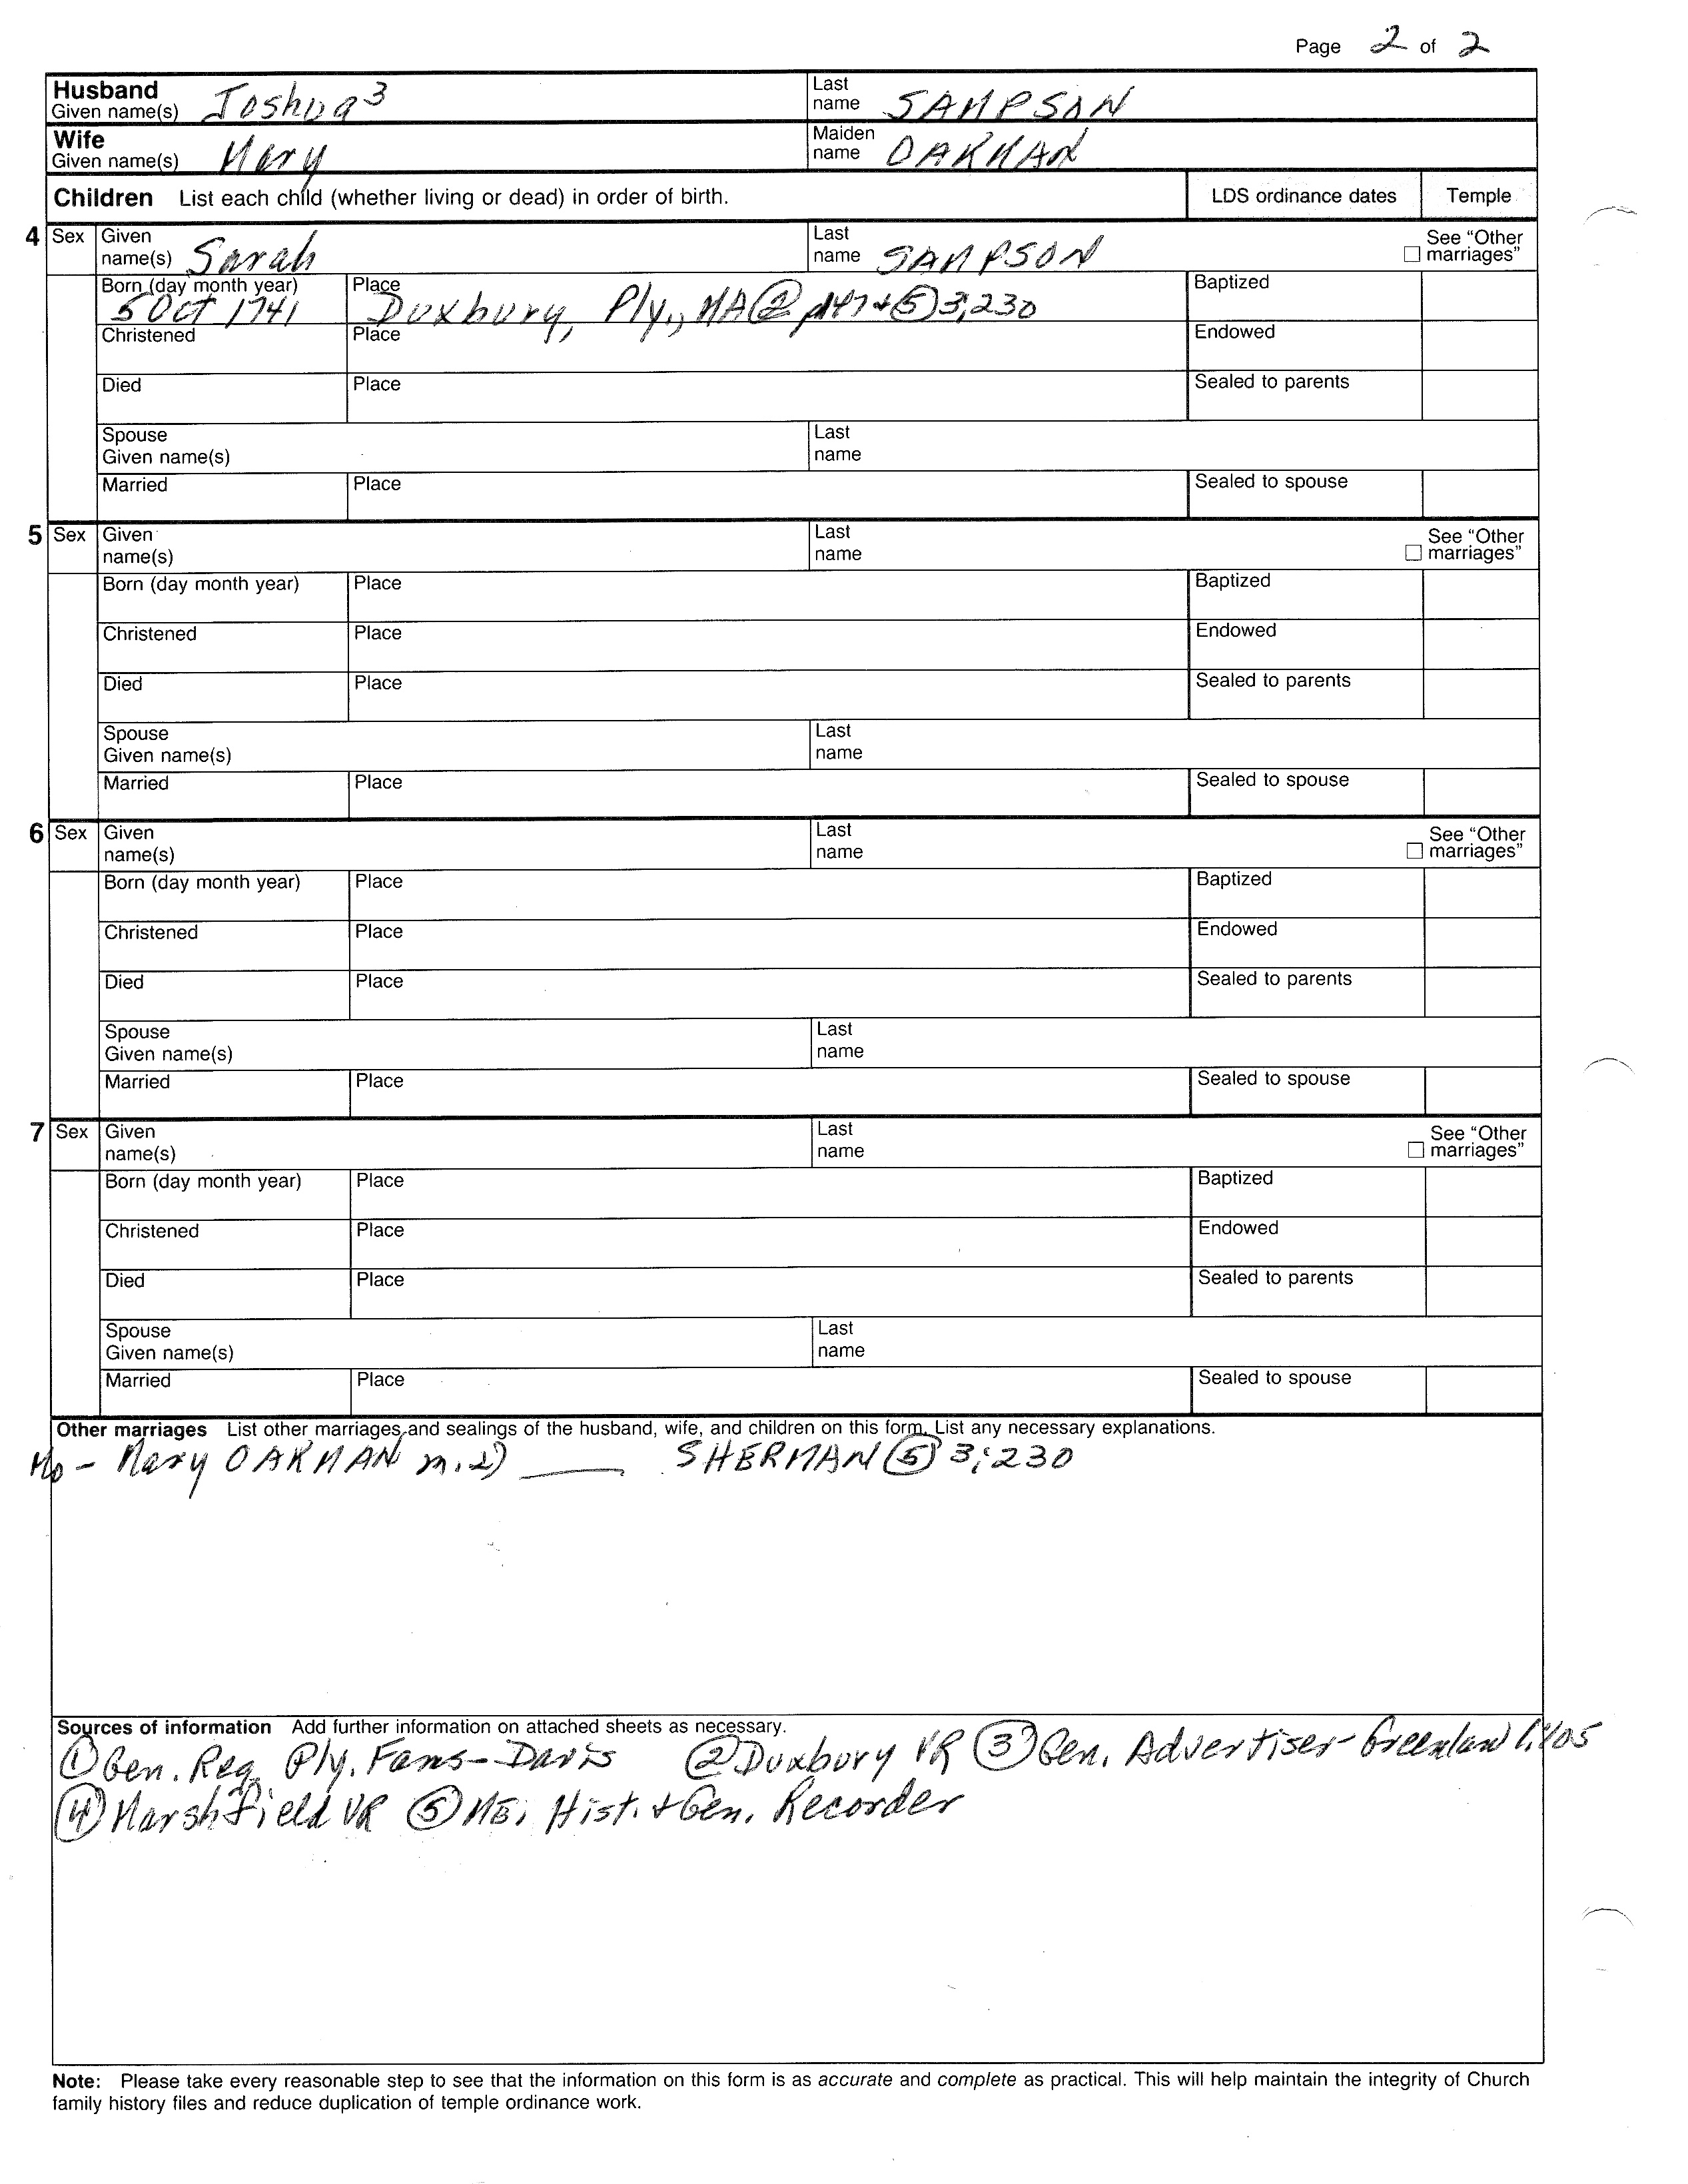 Page 2 of 2
Husband Given name(s) Joshua³ Last name SAMPSON
Wife Given name(s) Mary Maiden name OAKMAN
Children List each child (whether living or dead) in order of birth. LDS ordinance dates Temple
4 Sex Given name(s) Sarah Last name SAMPSON ☐ See "Other marriages"
Born (day month year) 5 Oct 1741 Place Duxbury, Ply., MA ② p147 + ⑤ 3;230 Baptized
Christened Place Endowed
Died Place Sealed to parents
Spouse Given name(s) Last name
Married Place Sealed to spouse
5 Sex Given name(s) Last name ☐ See "Other marriages"
Born (day month year) Place Baptized
Christened Place Endowed
Died Place Sealed to parents
Spouse Given name(s) Last name
Married Place Sealed to spouse
6 Sex Given name(s) Last name ☐ See "Other marriages"
Born (day month year) Place Baptized
Christened Place Endowed
Died Place Sealed to parents
Spouse Given name(s) Last name
Married Place Sealed to spouse
7 Sex Given name(s) Last name ☐ See "Other marriages"
Born (day month year) Place Baptized
Christened Place Endowed
Died Place Sealed to parents
Spouse Given name(s) Last name
Married Place Sealed to spouse
Other marriages List other marriages and sealings of the husband, wife, and children on this form. List any necessary explanations.
Mo - Mary OAKMAN m. 2) ____ SHERMAN ⑤ 3;230
Sources of information Add further information on attached sheets as necessary.
① Gen. Reg. Ply. Fams - Davis ② Duxbury VR ③ Gen. Advertiser - Greenlaw 1:105
④ Marshfield VR ⑤ ME. Hist. + Gen. Recorder
Note: Please take every reasonable step to see that the information on this form is as accurate and complete as practical. This will help maintain the integrity of Church
family history files and reduce duplication of temple ordinance work.